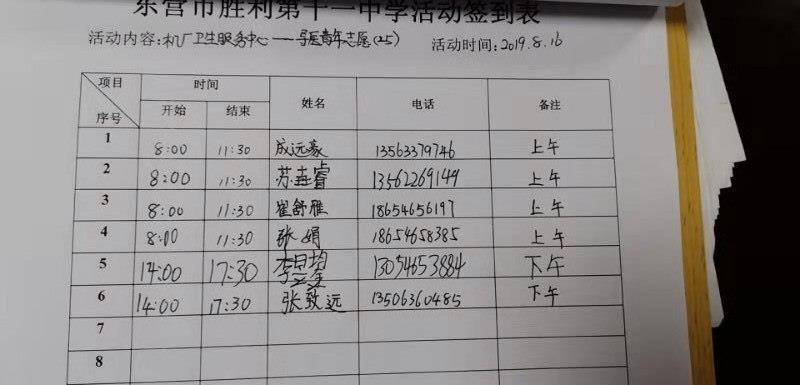 东营市胜利第十一中学活动签到表
活动内容:机厂卫生服务中心——导医青年志愿(25) 活动时间:2019.8.16
项目 时间
序号 开始 结束 姓名 电话 备注
1 8:00 11:30 成远豪 13563379746 上午
2 8:00 11:30 苏 睿 13562269149 上午
3 8:00 11:30 崔舒雅 18654656197 上午
4 8:00 11:30 张娟 18654658385 上午
5 14:00 17:30 13054653884 下午
6 14:00 17:30 张致远 13506360485 下午
7
8